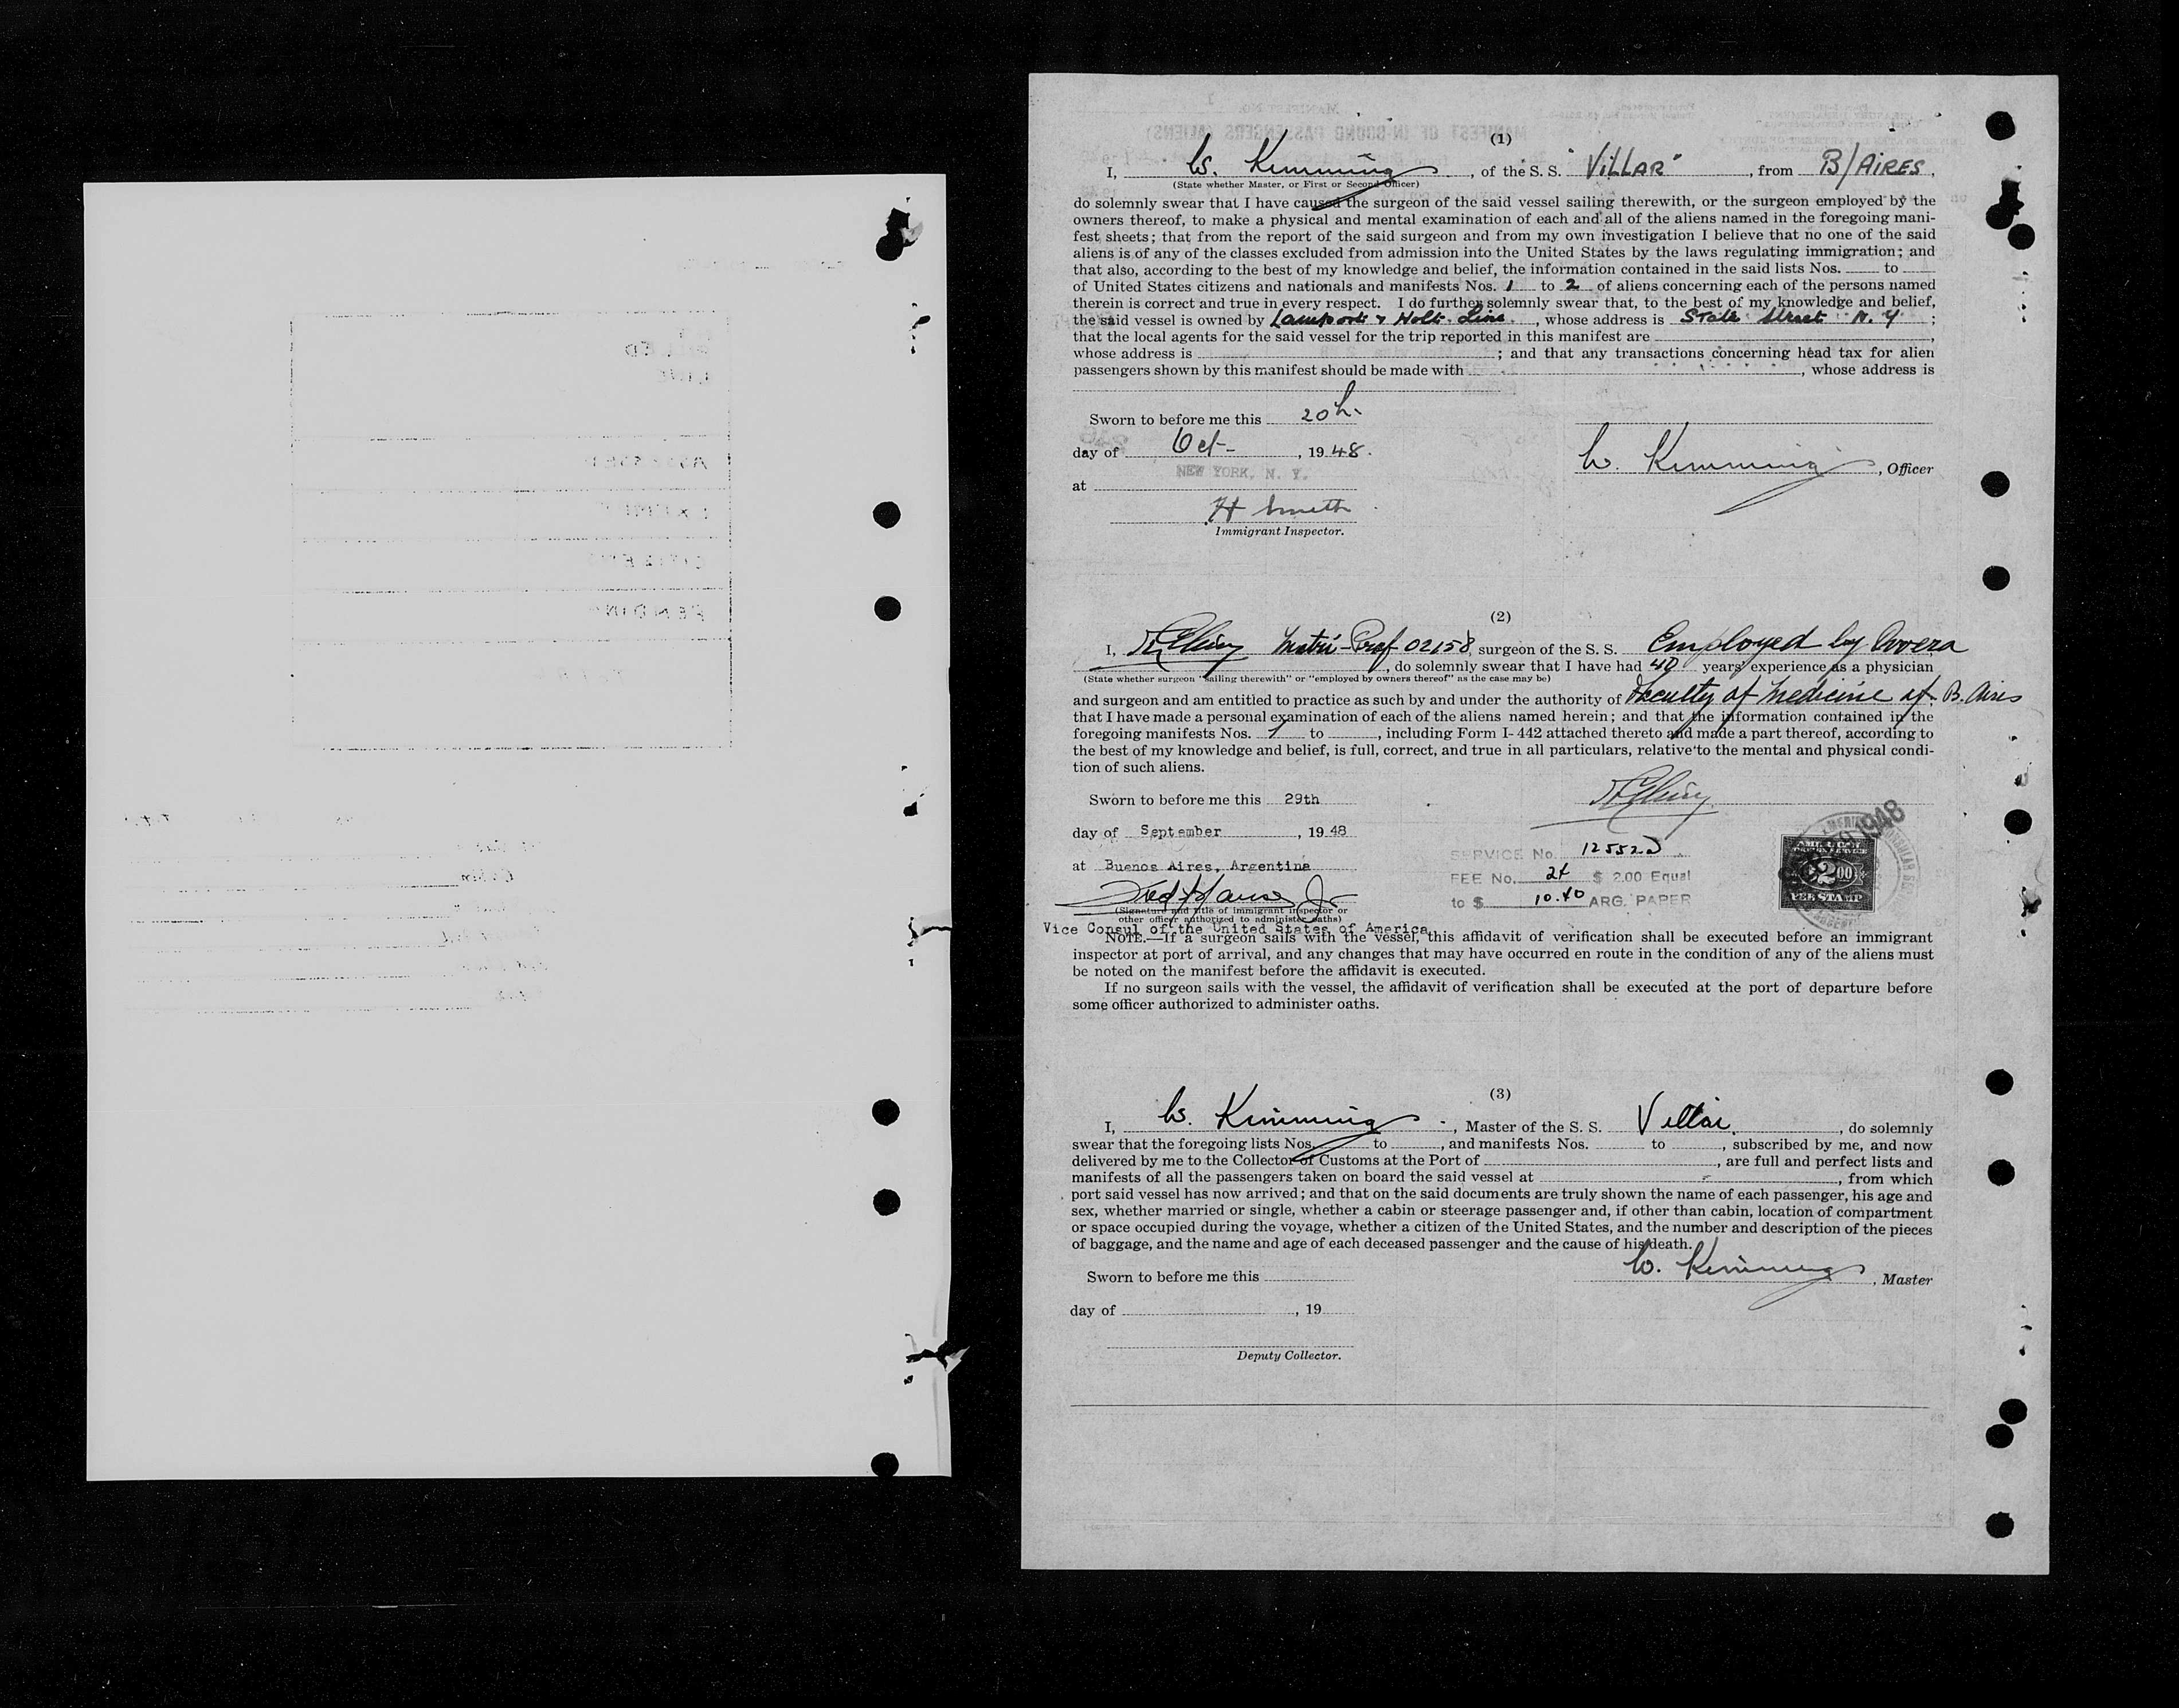 (1)
I, W. Kimming, of the S. S. "VILLAR", from B/AIRES,
(State whether Master, or First or Second Officer)
do solemnly swear that I have caused the surgeon of the said vessel sailing therewith, or the surgeon employed by the
owners thereof, to make a physical and mental examination of each and all of the aliens named in the foregoing mani-
fest sheets; that from the report of the said surgeon and from my own investigation I believe that no one of the said
aliens is of any of the classes excluded from admission into the United States by the laws regulating immigration; and
that also, according to the best of my knowledge and belief, the information contained in the said lists Nos. to
of United States citizens and nationals and manifests Nos. 1 to 2 of aliens concerning each of the persons named
therein is correct and true in every respect. I do further solemnly swear that, to the best of my knowledge and belief,
the said vessel is owned by Lamport & Holt Line, whose address is State Street N.Y;
that the local agents for the said vessel for the trip reported in this manifest are ,
whose address is ; and that any transactions concerning head tax for alien
passengers shown by this manifest should be made with , whose address is
Sworn to before me this 20th
day of Oct-, 1948.
NEW YORK, N. Y.
at
W. Kimming, Officer
H Smith
Immigrant Inspector.
(2)
I, Matri-Prof 02158, surgeon of the S. S. Employed by
, do solemnly swear that I have had 40 years experience as a physician
(State whether surgeon "sailing therewith" or "employed by owners thereof" as the case may be)
and surgeon and am entitled to practice as such by and under the authority of Faculty of Medicine of B. Aires
that I have made a personal examination of each of the aliens named herein; and that the information contained in the
foregoing manifests Nos. 1 to , including Form I-442 attached thereto and made a part thereof, according to
the best of my knowledge and belief, is full, correct, and true in all particulars, relative to the mental and physical condi-
tion of such aliens.
Sworn to before me this 29th
day of September, 1948
at Buenos Aires, Argentina
SERVICE No. 12552
FEE No. 24 $ 2.00 Equal
to $ 10.40 ARG. PAPER
AMERICAN
$2.00
FEE STAMP
1948
(Signature and title of immigrant inspector or
other officer authorized to administer oaths)
Vice Consul of the United States of America
NOTE.—If a surgeon sails with the vessel, this affidavit of verification shall be executed before an immigrant
inspector at port of arrival, and any changes that may have occurred en route in the condition of any of the aliens must
be noted on the manifest before the affidavit is executed.
If no surgeon sails with the vessel, the affidavit of verification shall be executed at the port of departure before
some officer authorized to administer oaths.
(3)
I, W. Kimming, Master of the S. S. Villar, do solemnly
swear that the foregoing lists Nos. to , and manifests Nos. to , subscribed by me, and now
delivered by me to the Collector of Customs at the Port of , are full and perfect lists and
manifests of all the passengers taken on board the said vessel at , from which
port said vessel has now arrived; and that on the said documents are truly shown the name of each passenger, his age and
sex, whether married or single, whether a cabin or steerage passenger and, if other than cabin, location of compartment
or space occupied during the voyage, whether a citizen of the United States, and the number and description of the pieces
of baggage, and the name and age of each deceased passenger and the cause of his death.
W. Kimming, Master
Sworn to before me this
day of , 19
Deputy Collector.